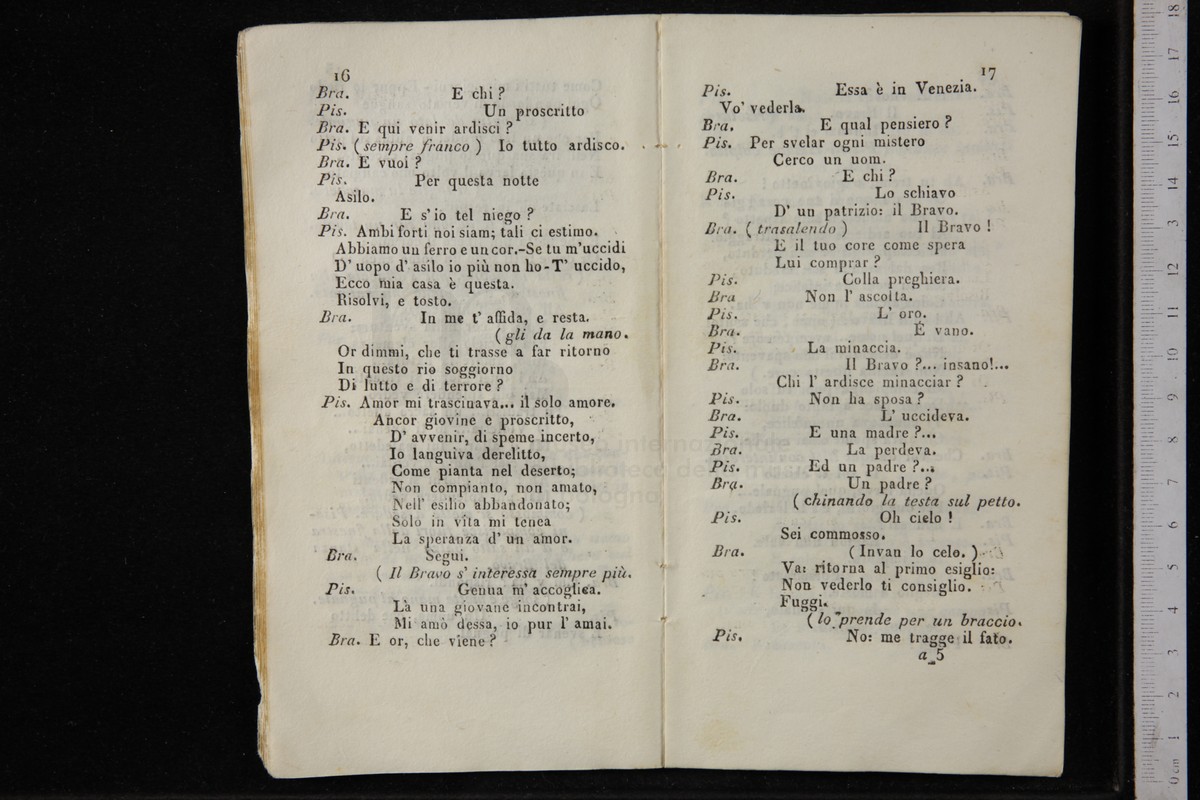 16
Bra. E chi ?
Pis. Un proscritto
Bra. E qui venir ardisci ?
Pis. ( sempre franco ) Io tutto ardisco.
Bra. E vuoi ?
Pis. Per questa notte
Asilo.
Bra. E s' io tel niego ?
Pis. Ambi forti noi siam; tali ci estimo.
Abbiamo un ferro e un cor.-Se tu m'uccidi
D' uopo d' asilo io più non ho-T' uccido,
Ecco mia casa è questa.
Risolvi, e tosto.
Bra. In me t' affida, e resta.
( gli da la mano.
Or dimmi, che ti trasse a far ritorno
In questo rio soggiorno
Di lutto e di terrore ?
Pis. Amor mi trascinava... il solo amore.
Ancor giovine e proscritto,
D' avvenir, di speme incerto,
Io languiva derelitto,
Come pianta nel deserto;
Non compianto, non amato,
Nell' esilio abbandonato;
Solo in vita mi tenea
La speranza d' un amor.
Bra. Segui.
( Il Bravo s' interessa sempre più.
Pis. Genua m' accogliea.
Là una giovane incontrai,
Mi amò dessa, io pur l' amai.
Bra. E or, che viene ?
17
Pis. Essa è in Venezia.
Vo' vederla.
Bra. E qual pensiero ?
Pis. Per svelar ogni mistero
Cerco un uom.
Bra. E chi ?
Pis. Lo schiavo
D' un patrizio: il Bravo.
Bra. ( trasalendo ) Il Bravo !
E il tuo core come spera
Lui comprar ?
Pis. Colla preghiera.
Bra Non l' ascolta.
Pis. L' oro.
Bra. É vano.
Pis. La minaccia.
Bra. Il Bravo ?... insano!...
Chi l' ardisce minacciar ?
Pis. Non ha sposa ?
Bra. L' uccideva.
Pis. E una madre ?...
Bra. La perdeva.
Pis. Ed un padre ?...
Bra. Un padre ?
( chinando la testa sul petto.
Pis. Oh cielo !
Sei commosso.
Bra. ( Invan lo celo. )
Va: ritorna al primo esiglio:
Non vederlo ti consiglio.
Fuggi.
( lo prende per un braccio.
Pis. No: me tragge il fato.
a 5